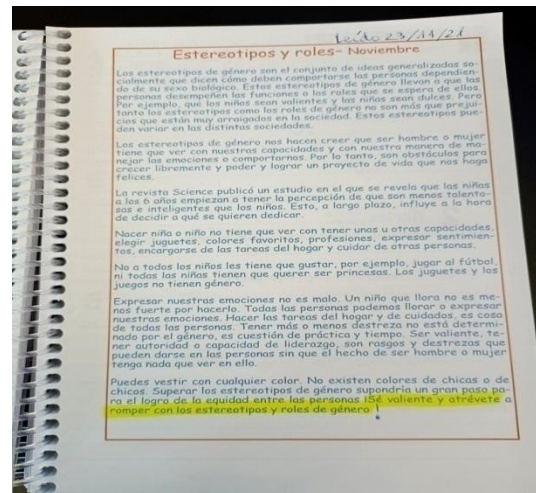 Leído 23/11/21
Estereotipos y roles- Noviembre
Los estereotipos de género son el conjunto de ideas generalizadas so-
cialmente que dicen cómo deben comportarse las personas dependien-
do de su sexo biológico. Estos estereotipos de género llevan a que las
personas desempeñen las funciones o los roles que se espera de ellas.
Por ejemplo, que los niños sean valientes y las niñas sean dulces. Pero
tanto los estereotipos como los roles de género no son más que prejui-
cios que están muy arraigados en la sociedad. Estos estereotipos pue-
den variar en las distintas sociedades.
Los estereotipos de género nos hacen creer que ser hombre o mujer
tiene que ver con nuestras capacidades y con nuestra manera de ma-
nejar las emociones o comportarnos. Por lo tanto, son obstáculos para
crecer libremente y poder y lograr un proyecto de vida que nos haga
felices.
La revista Science publicó un estudio en el que se revela que las niñas
a los 6 años empiezan a tener la percepción de que son menos talento-
sas e inteligentes que los niños. Esto, a largo plazo, influye a la hora
de decidir a qué se quieren dedicar.
Nacer niña o niño no tiene que ver con tener unas u otras capacidades,
elegir juguetes, colores favoritos, profesiones, expresar sentimien-
tos, encargarse de las tareas del hogar y cuidar de otras personas.
No a todos los niños les tiene que gustar, por ejemplo, jugar al fútbol,
ni todas las niñas tienen que querer ser princesas. Los juguetes y los
juegos no tienen género.
Expresar nuestras emociones no es malo. Un niño que llora no es me-
nos fuerte por hacerlo. Todas las personas podemos llorar o expresar
nuestras emociones. Hacer las tareas del hogar y de cuidados, es cosa
de todas las personas. Tener más o menos destreza no está determi-
nado por el género, es cuestión de práctica y tiempo. Ser valiente, te-
ner autoridad o capacidad de liderazgo, son rasgos y destrezas que
pueden darse en las personas sin que el hecho de ser hombre o mujer
tenga nada que ver en ello.
Puedes vestir con cualquier color. No existen colores de chicas o de
chicos. Superar los estereotipos de género supondría un gran paso pa-
ra el logro de la equidad entre las personas ¡Sé valiente y atrévete a
romper con los estereotipos y roles de género !